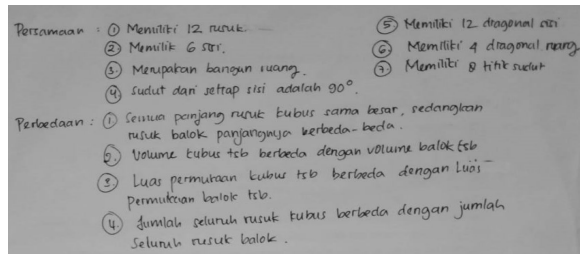 Persamaan : ① Memiliki 12 rusuk.
② Memilik 6 sisi.
③ Merupakan bangun ruang.
④ sudut dari setiap sisi adalah 90°.
⑤ Memiliki 12 diagonal sisi
⑥ Memiliki 4 diagonal ruang
⑦ Memiliki 8 titik sudut
Perbedaan : ① Semua panjang rusuk kubus sama besar, sedangkan
rusuk balok panjangnya berbeda-beda.
②. Volume kubus tsb berbeda dengan volume balok tsb
③. Luas permukaan kubus tsb berbeda dengan Luas
Permukaan balok tsb.
④. Jumlah seluruh rusuk kubus berbeda dengan jumlah
Seluruh rusuk balok.